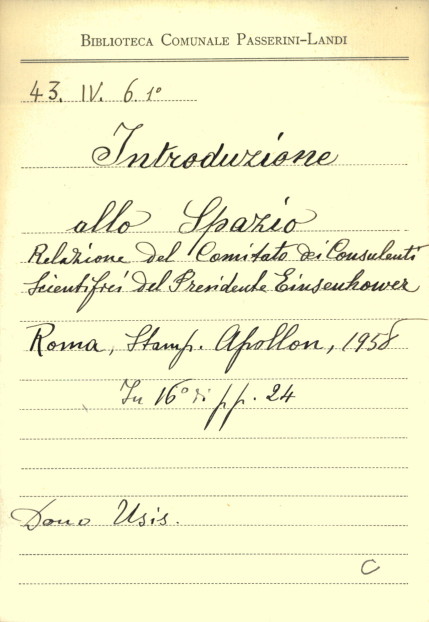 BIBLIOTECA COMUNALE PASSERINI-LANDI
43. IV. 6. 1º
Introduzione
allo Spazio
Relazione del Comitato dei Consulenti
Scientifici del Presidente Einsenhower
Roma, Stamp. Apollon, 1958
In 16º di pp. 24
Dono Usis.
C